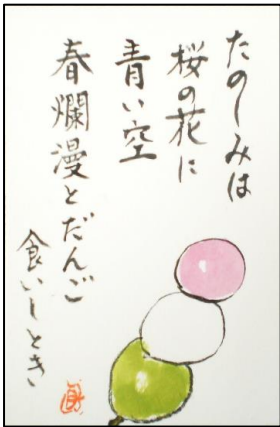 たのしみは
桜の花に
青い空
春爛漫とだんご
食いしとき